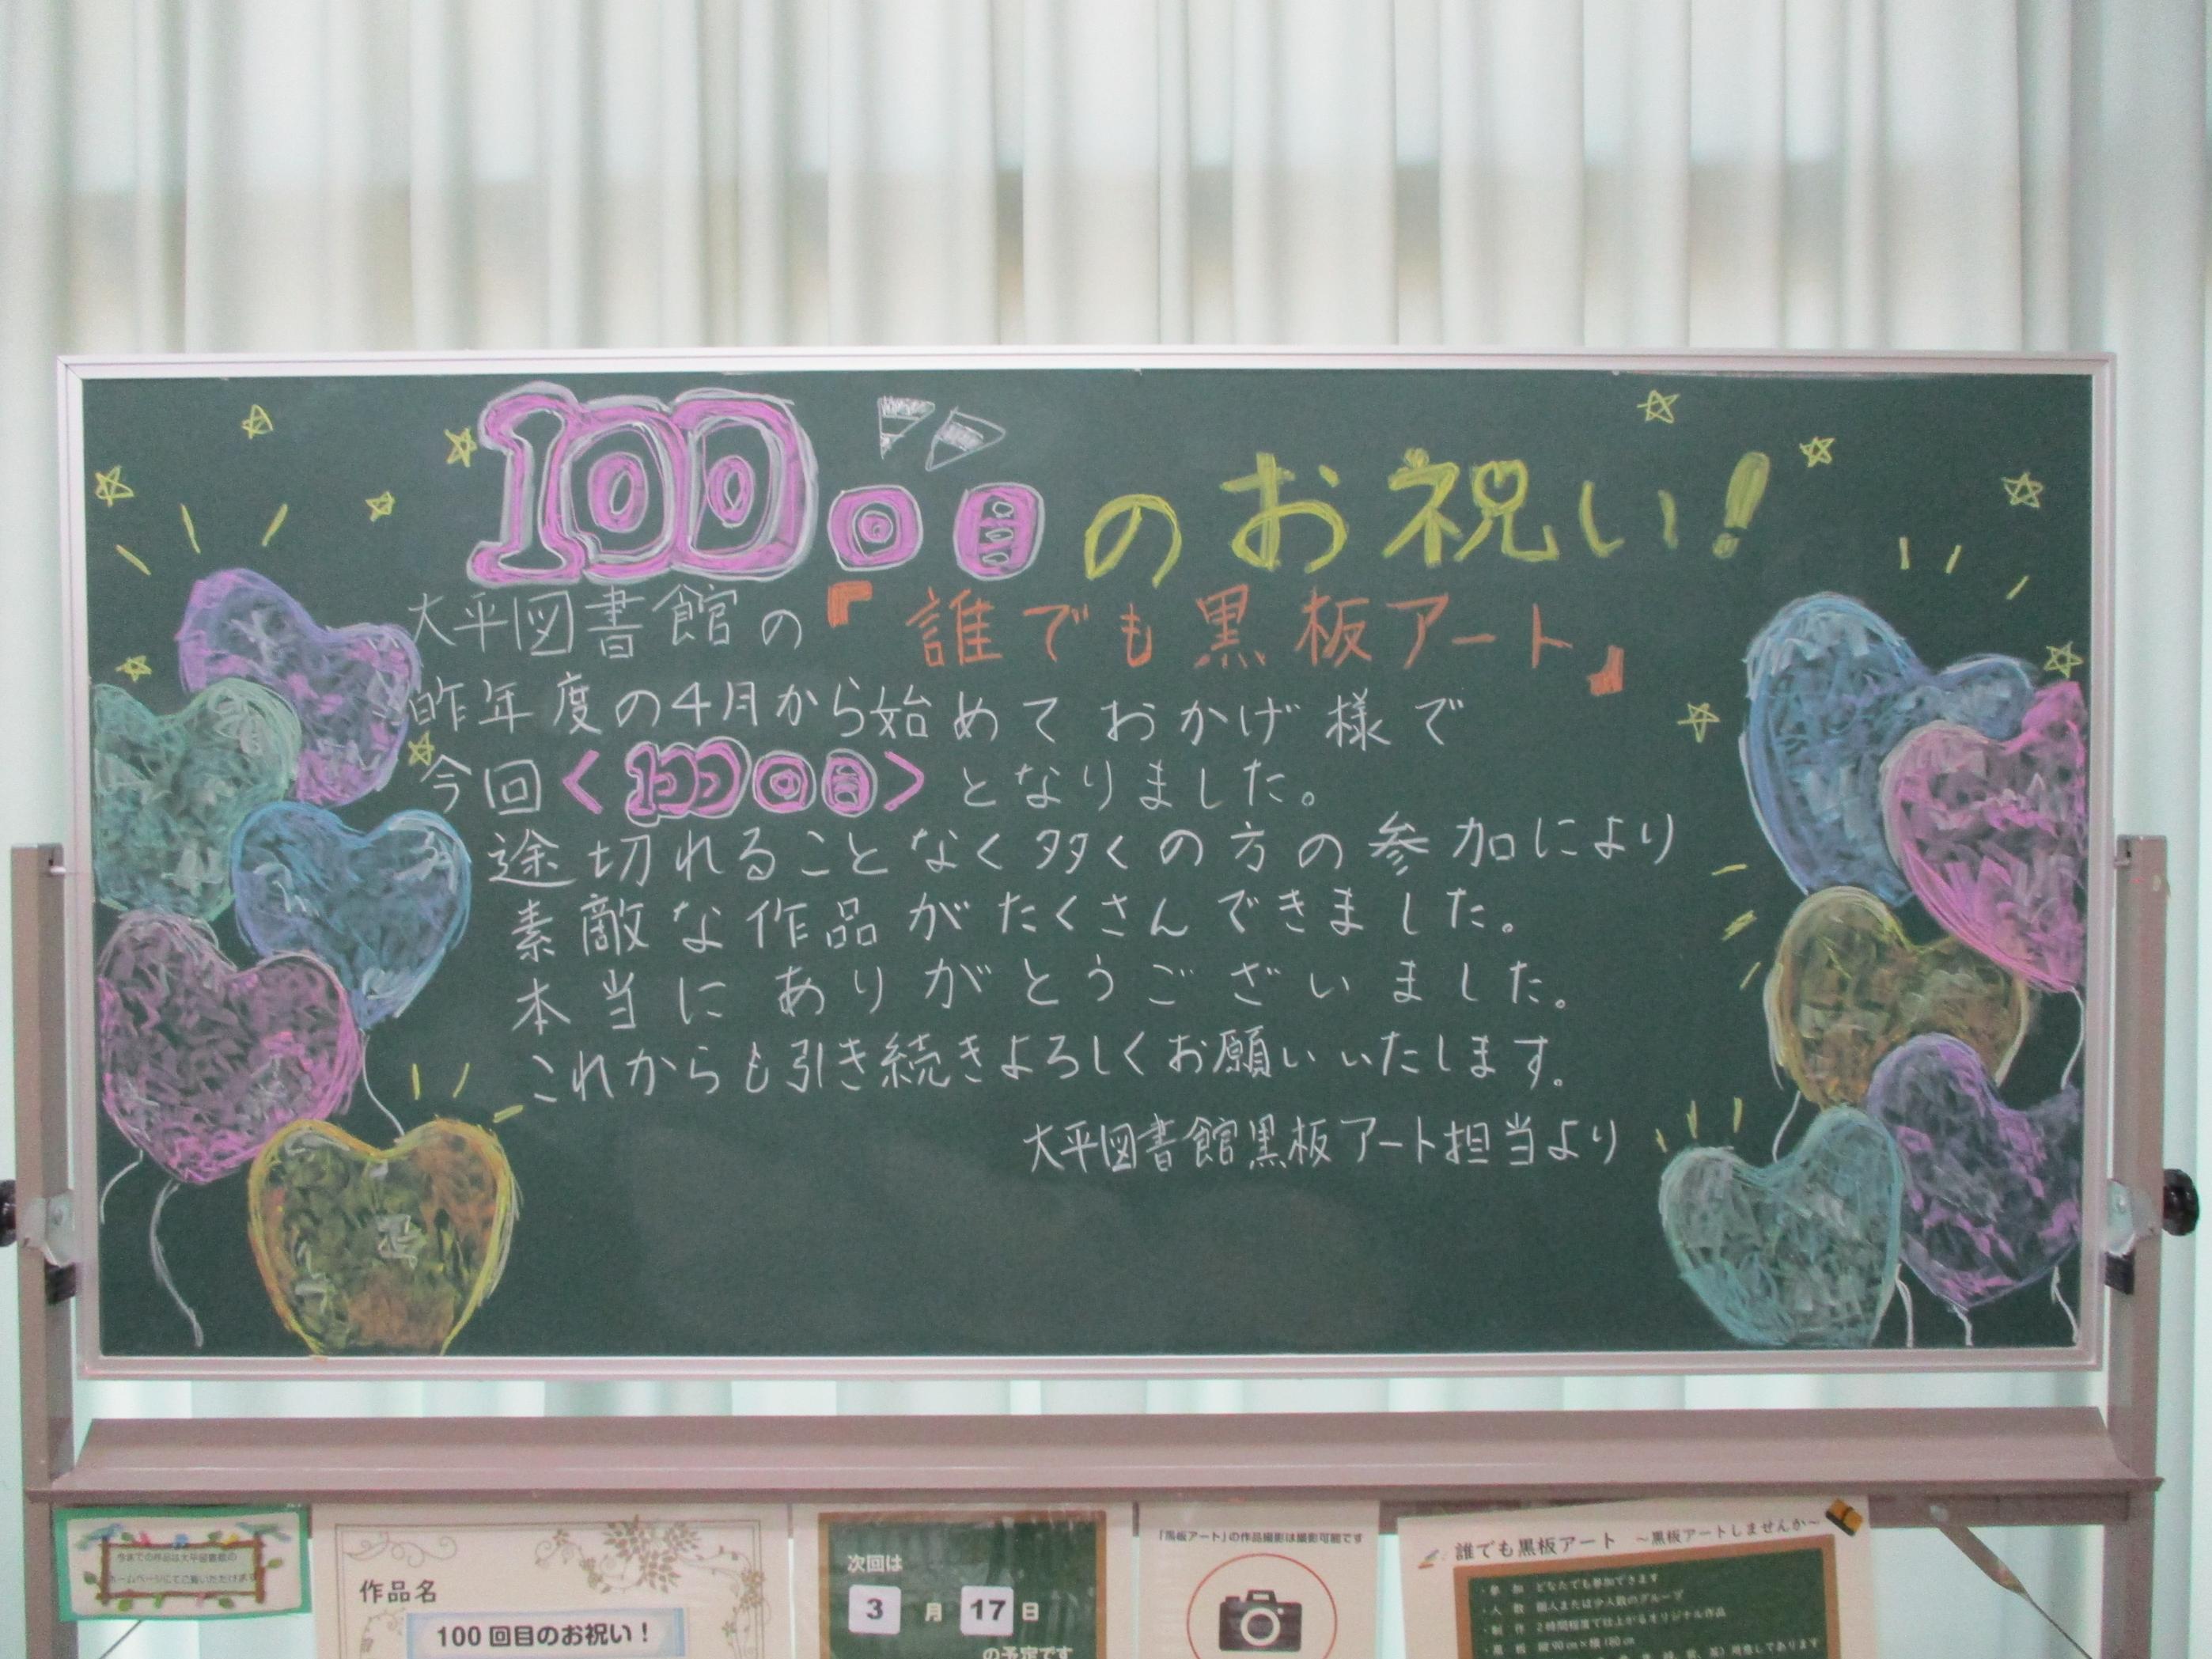 100回目のお祝い!
大平図書館の『誰でも黒板アート』
昨年度の4月から始めておかげ様で
今回<100回目>となりました。
途切れることなく多くの方の参加により
素敵な作品がたくさんできました。
本当にありがとうございました。
これからも引き続きよろしくお願いいたします。
大平図書館黒板アート担当より
今までの作品は大平図書館の
ホームページにてご覧いただけます
作品名
100回目のお祝い!
次回は
3月17日
の予定です
「黒板アート」の作品撮影は撮影可能です
誰でも黒板アート ～黒板アートしませんか～
・参 加 どなたでも参加できます
・人 数 個人または少人数のグループ
・制 作 2時間程度で仕上がるオリジナル作品
・黒 板 縦90cm×横180cm
用意してあります